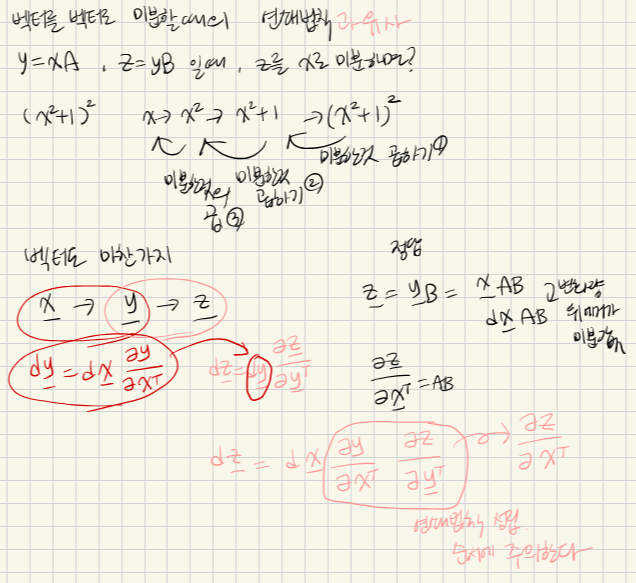 벡터를 벡터로 미분할때의 연쇄법칙 과 유사
y=xA , z=yB 일때, z를 x로 미분하면?
(x²+1)² x→x²→x²+1 →(x²+1)²
미분한것 곱하기①
미분한것 곱하기②
미분한것의 곱③
벡터도 마찬가지
x → y → z
dy = dx ∂y/∂xᵀ
dz = dy ∂z/∂yᵀ
정답
z = yB = xAB
dx AB
미분값
∂z/∂xᵀ = AB
dz = dx ∂y/∂xᵀ ∂z/∂yᵀ → ∂z/∂xᵀ
연쇄법칙 성립.
순서에 주의한다